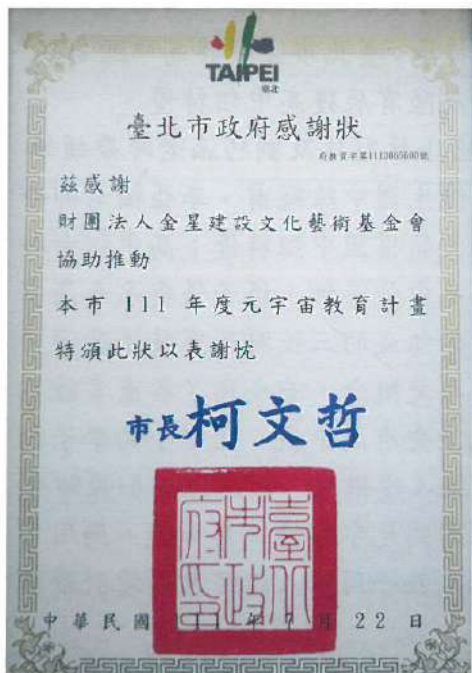 TAIPEI
臺北
臺北市政府感謝狀
府教資字第1113065600號
茲感謝
財團法人金星建設文化藝術基金會
協助推動
本市 111 年度元宇宙教育計畫
特頒此狀以表謝忱
市長柯文哲
臺北市政府印
中華民國 111 年 7 月 22 日